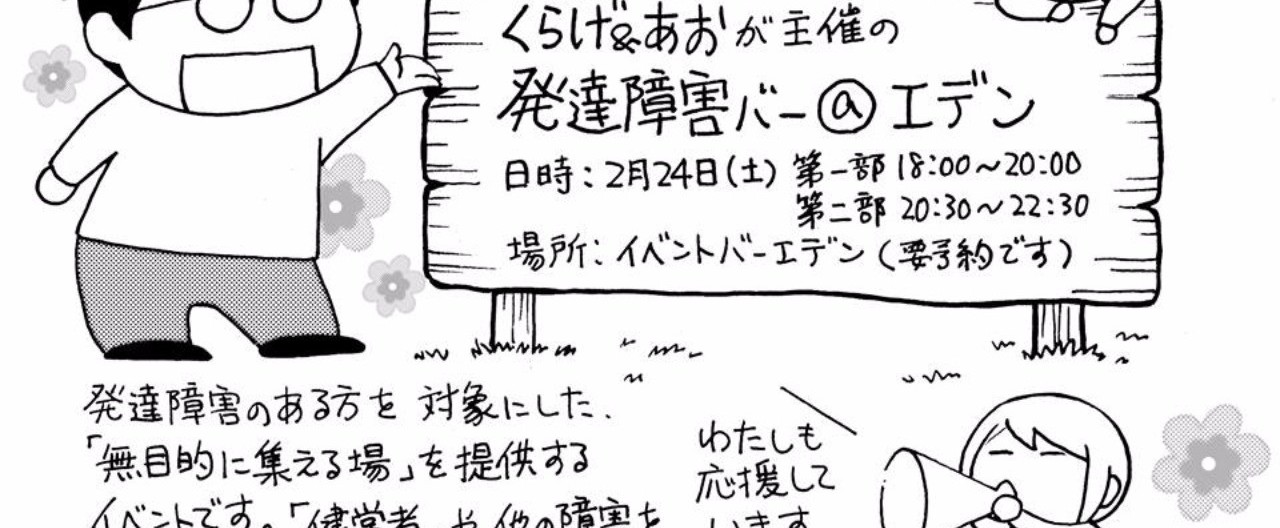 くらげ&あおが主催の
発達障害バー@エデン
日時:2月24日(土) 第一部 18:00~20:00
第二部 20:30~22:30
場所:イベントバーエデン(要予約です)
発達障害のある方を対象にした、
「無目的に集える場」を提供する
イベントです。「健常者」や他の障害を
わたしも
応援して
います